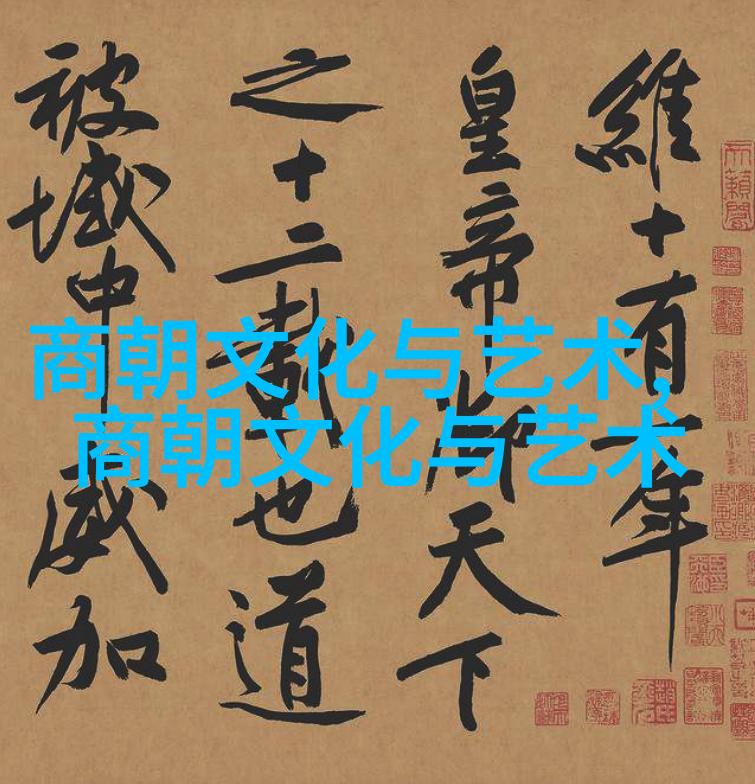 商朝文化与艺术,
商朝文化与艺术
維十有一年
皇帝御天下
之十二載也道
被域中威加